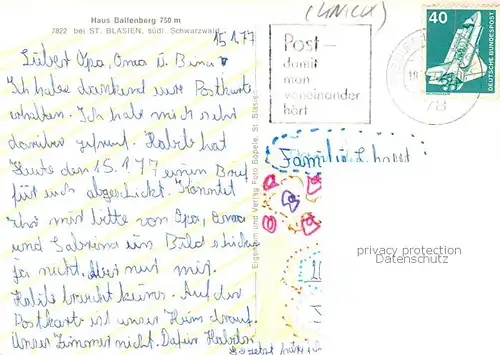 Haus Ballenberg 750 m
7822 bei ST. BLASIEN, südl. Schwarzwald
15.1.77
Lieber Opa, Oma u.
Ich habe dankend eure Postkarte
erhalten. Ich habe mich sehr
darüber gefreut. Habe
Heute den 15.1.77 einen Brief
für euch abgeschickt. Könntet
Ihr mir bitte von Opa, Oma
und Sabrina ein Bild schicken
ja nicht. Aber nur mir.
braucht keins. Auf der
Postkarte ist unser Heim drauf.
Unser Zimmer nicht. Dafür
Eigentum und Verlag Foto Bäpele, St. Blasien
Post –
damit
man
voneinander
hört
78
40
DEUTSCHE BUNDESPOST
Familie
privacy protection
Datenschutz